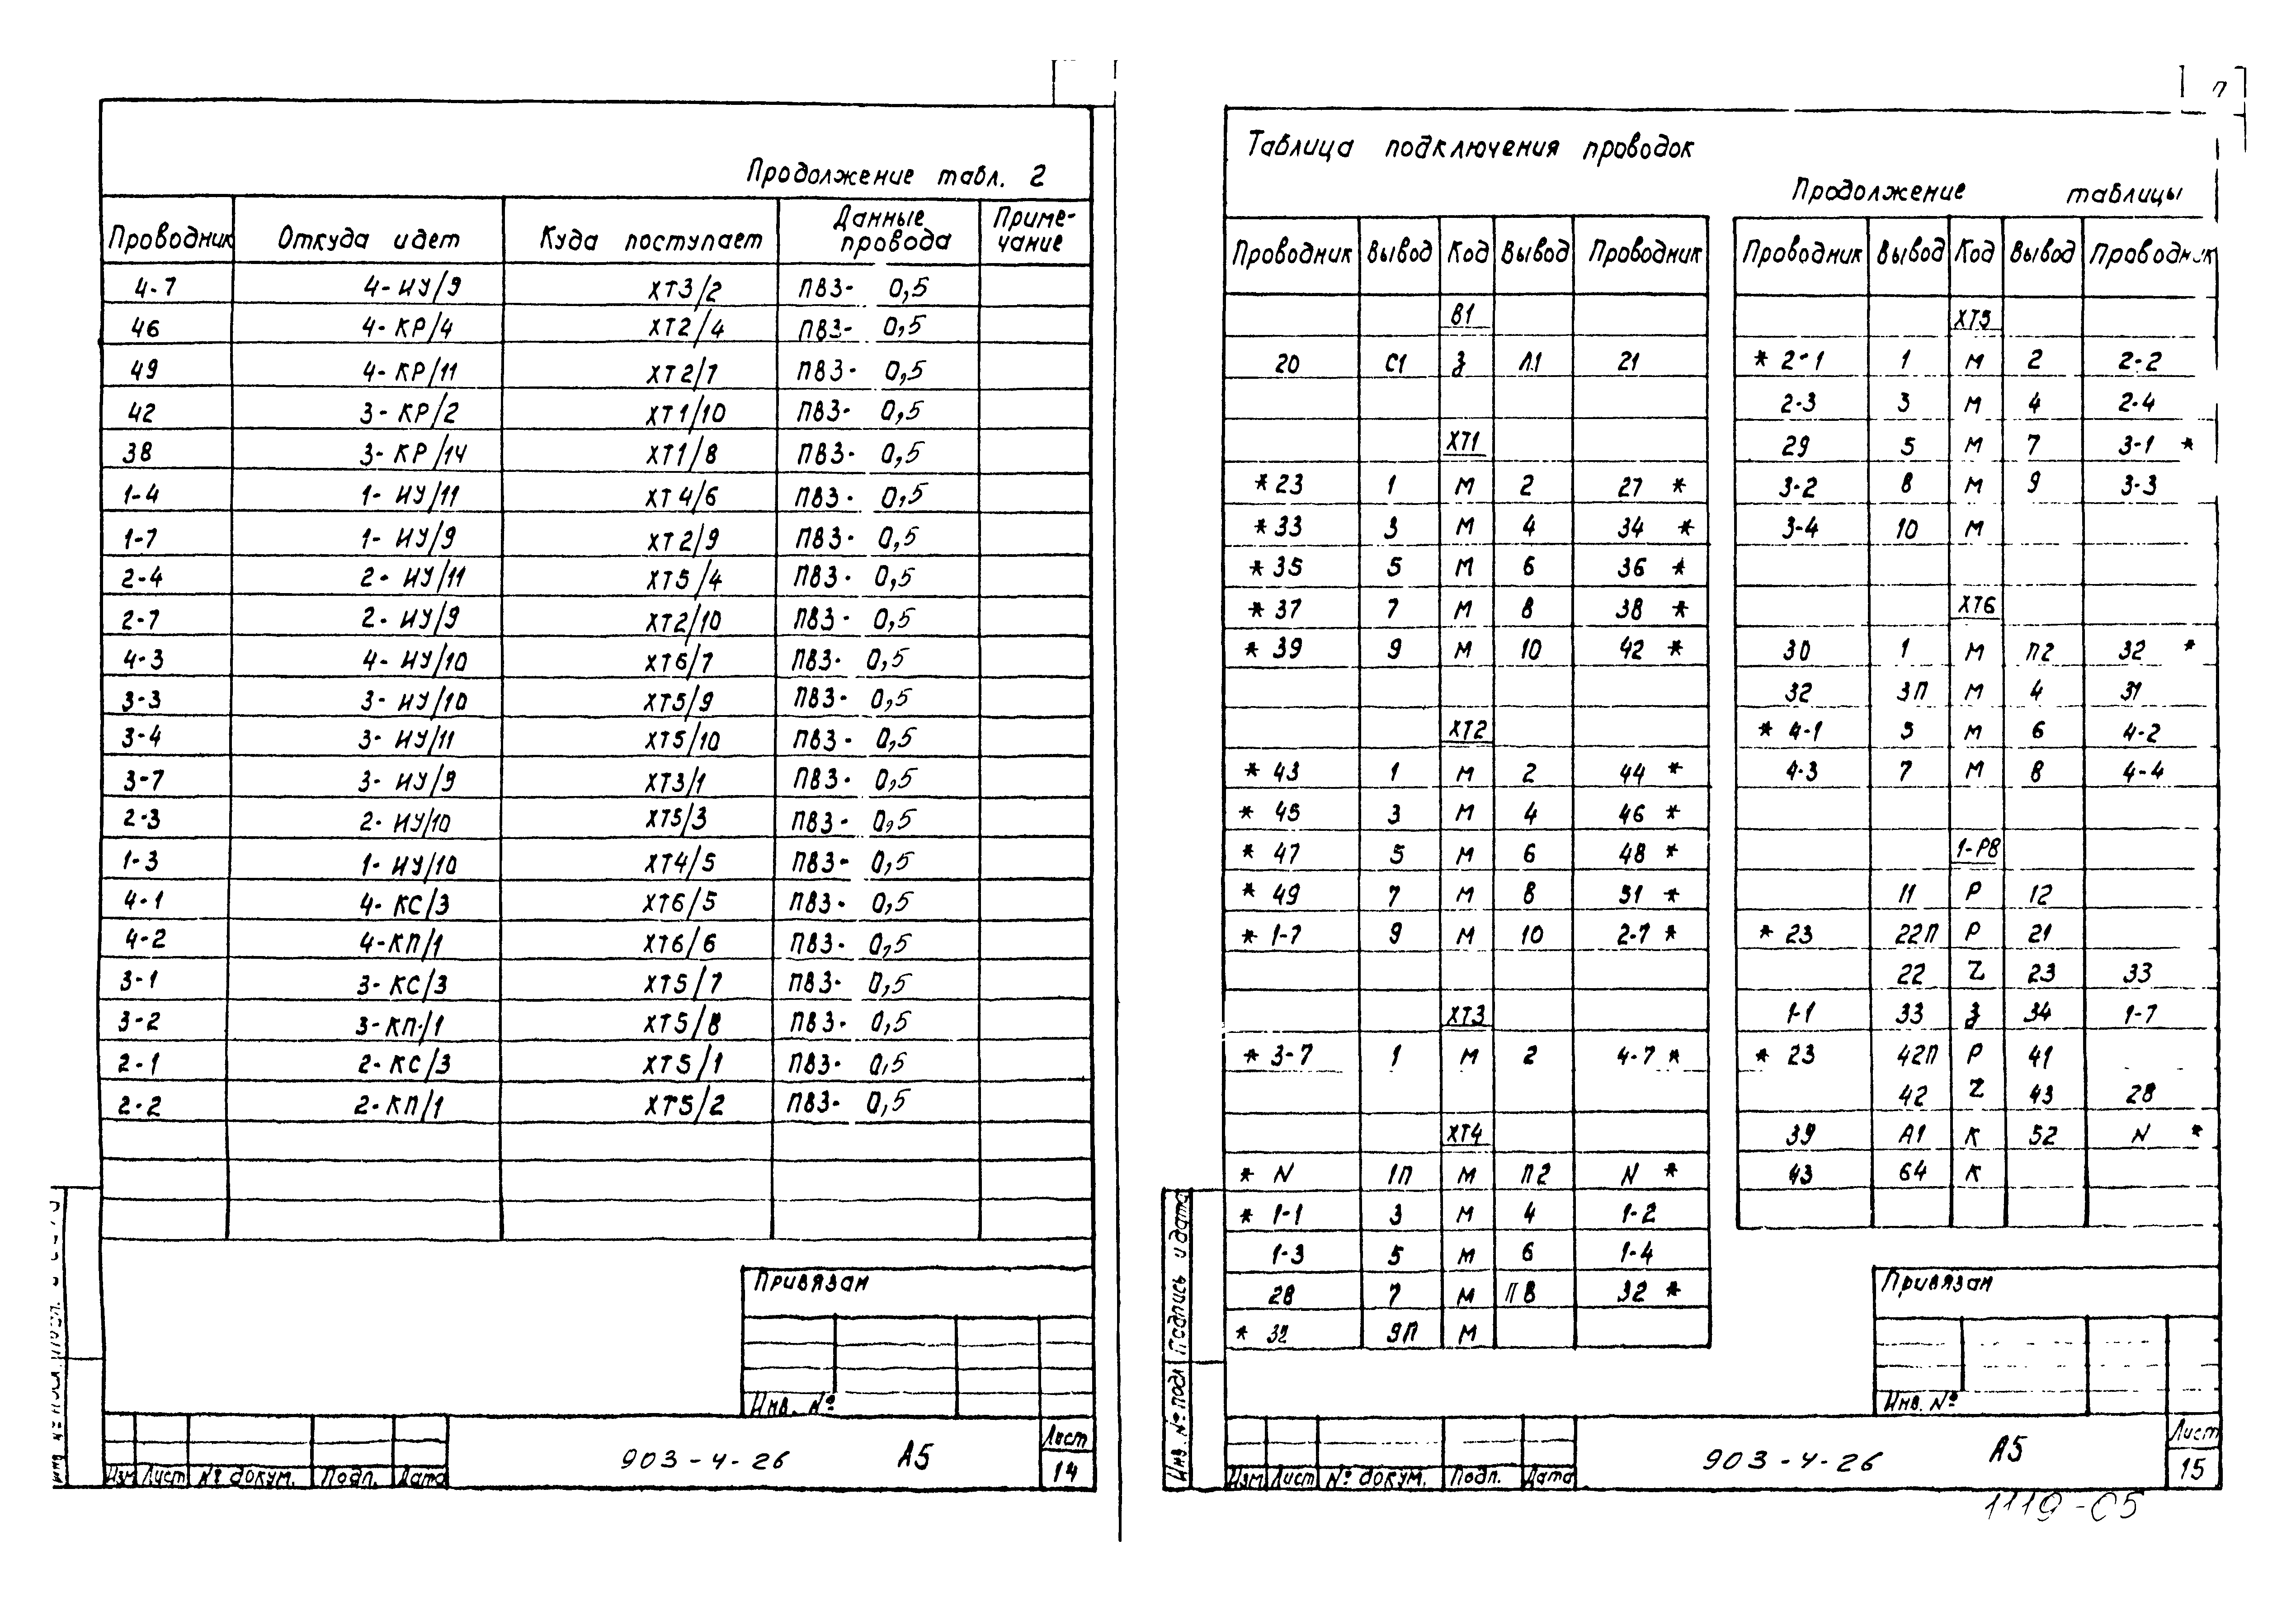 Продолжение табл. 2
Проводник Откуда идет Куда поступает Данные провода Приме-чание
4-7 4-ИУ/9 ХТ3/2 ПВ3- 0,5
46 4-КР/4 ХТ2/4 ПВ3- 0,5
49 4-КР/11 ХТ2/7 ПВ3- 0,5
42 3-КР/2 ХТ1/10 ПВ3- 0,5
38 3-КР/14 ХТ1/8 ПВ3- 0,5
1-4 1-ИУ/11 ХТ4/6 ПВ3- 0,5
1-7 1-ИУ/9 ХТ2/9 ПВ3- 0,5
2-4 2-ИУ/11 ХТ5/4 ПВ3- 0,5
2-7 2-ИУ/9 ХТ2/10 ПВ3- 0,5
4-3 4-ИУ/10 ХТ6/7 ПВ3- 0,5
3-3 3-ИУ/10 ХТ5/9 ПВ3- 0,5
3-4 3-ИУ/11 ХТ5/10 ПВ3- 0,5
3-7 3-ИУ/9 ХТ3/1 ПВ3- 0,5
2-3 2-ИУ/10 ХТ5/3 ПВ3- 0,5
1-3 1-ИУ/10 ХТ4/5 ПВ3- 0,5
4-1 4-КС/3 ХТ6/5 ПВ3- 0,5
4-2 4-КП/1 ХТ6/6 ПВ3- 0,5
3-1 3-КС/3 ХТ5/7 ПВ3- 0,5
3-2 3-КП/1 ХТ5/8 ПВ3- 0,5
2-1 2-КС/3 ХТ5/1 ПВ3- 0,5
2-2 2-КП/1 ХТ5/2 ПВ3- 0,5
Привязан
Инв. №
Изм Лист № докум. Подп. Дата
903-4-26 А5
Лист
14
Таблица подключения проводок
Проводник Вывод Код Вывод Проводник
В1
20 С1 З Л1 21
ХТ1
* 23 1 М 2 27 *
* 33 3 М 4 34 *
* 35 5 М 6 36 *
* 37 7 М 8 38 *
* 39 9 М 10 42 *
ХТ2
* 43 1 М 2 44 *
* 45 3 М 4 46 *
* 47 5 М 6 48 *
* 49 7 М 8 31 *
* 1-7 9 М 10 2-7 *
ХТ3
* 3-7 1 М 2 4-7 *
ХТ4
* N 1П М П2 N *
* 1-1 3 М 4 1-2
1-3 5 М 6 1-4
28 7 М П8 32 *
* 32 9П М
Продолжение таблицы
Проводник Вывод Код Вывод Проводник
ХТ5
* 2-1 1 М 2 2-2
2-3 3 М 4 2-4
29 5 М 7 3-1 *
3-2 8 М 9 3-3
3-4 10 М
ХТ6
30 1 М П2 32 *
32 3П М 4 31
* 4-1 5 М 6 4-2
4-3 7 М 8 4-4
1-Р8
11 Р 12
* 23 22П Р 21
22 Z 23 33
1-1 33 З 34 1-7
* 23 42П Р 41
42 Z 43 28
39 А1 К 52 N *
43 64 К
Привязан
Инв. №
Инв. № подл Подпись и дата
Изм Лист № докум. Подп. Дата
903-4-26 А5
Лист
15
1119-05